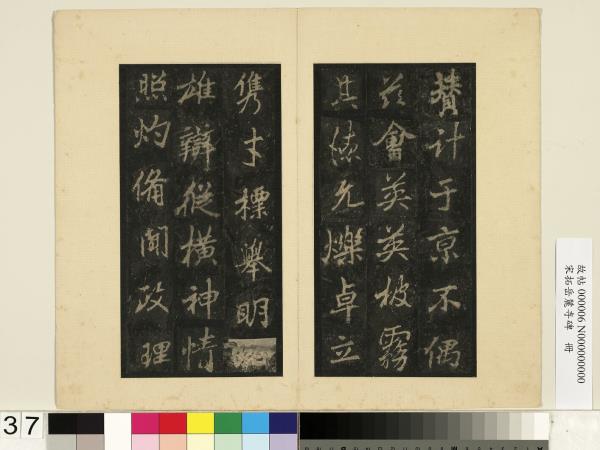 贊計于京不偶
茲會英英披霧
其德允爍卓立
雋才標舉明
雄辯縱橫神情
照灼備聞政理
故帖 000006 N000000000
宋拓岳麓寺碑 冊
37